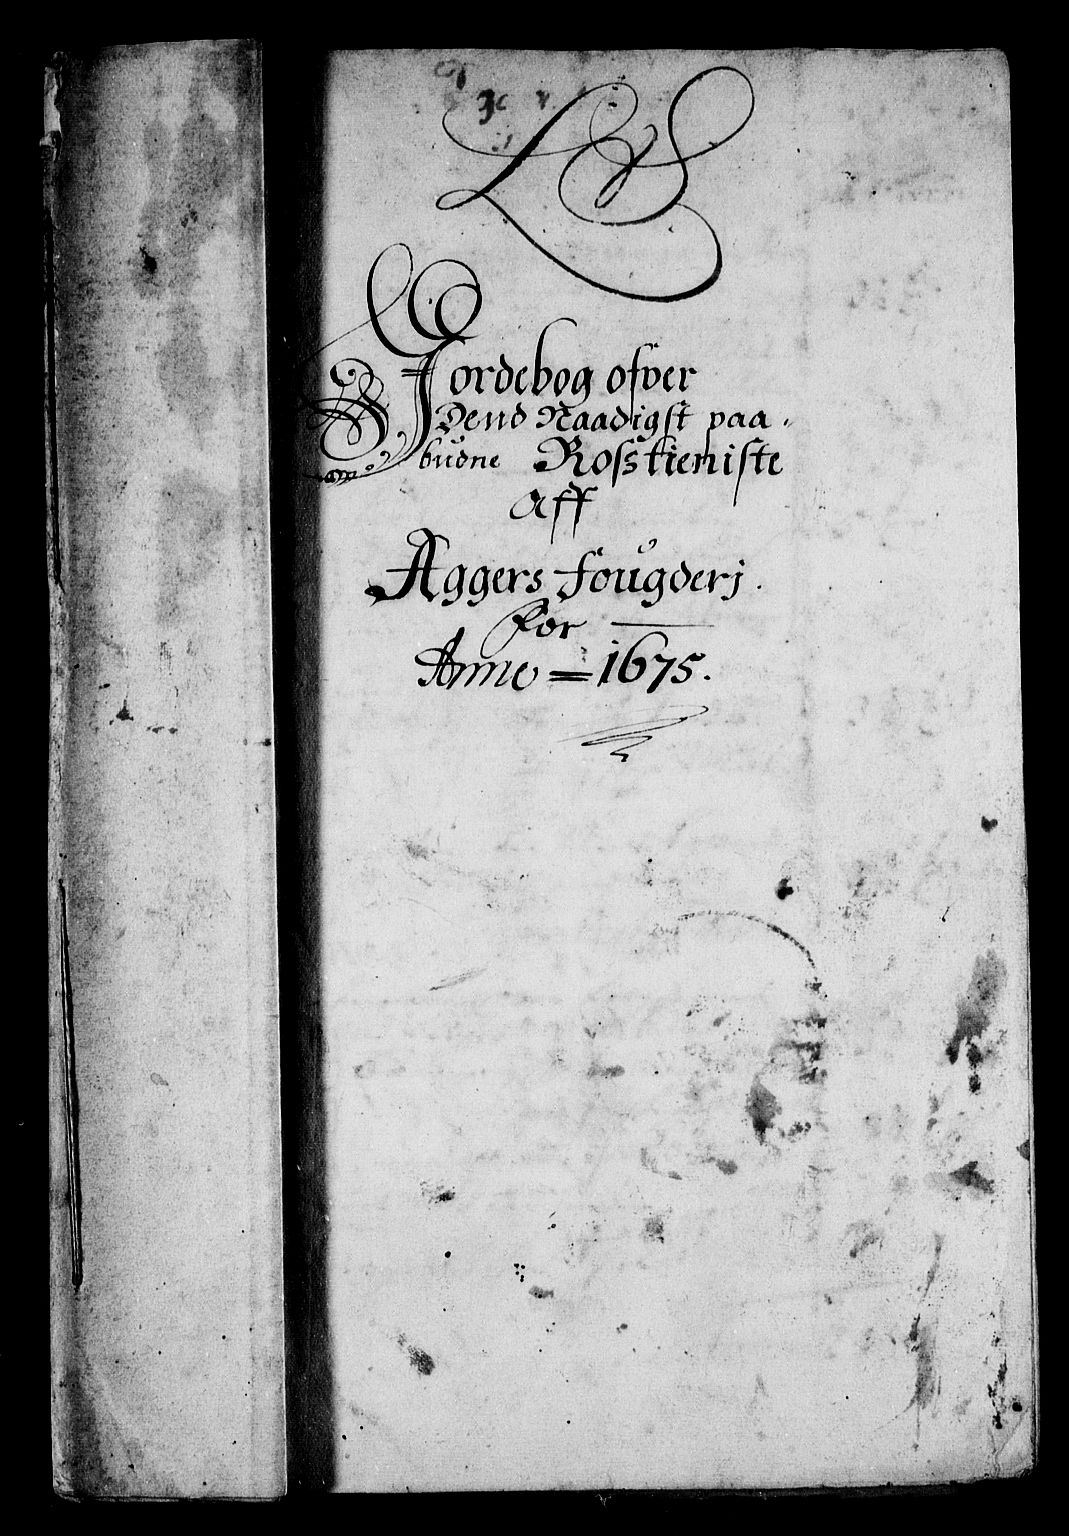 LS
Jordebog ofver
Dend Naadigst paa-
budne Rosstieniste
Aff
Aggers fougderj.
for
Anno = 1675.